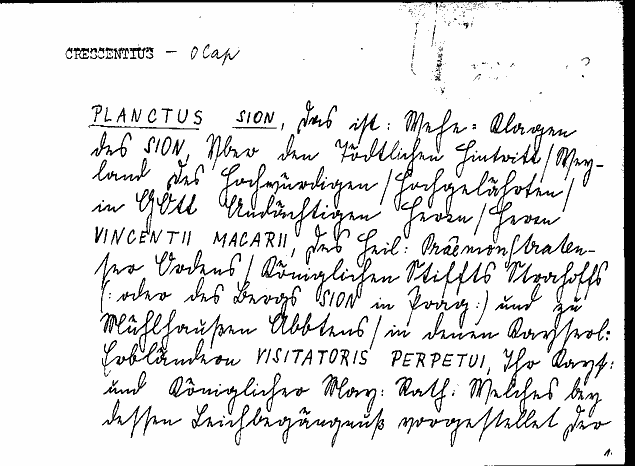 CRESCENTIUS - OCap
PLANCTUS SION, das ist: Wehe= Klagen
des SION, Über den Tödtlichen Hintritt/Wey-
land des Hochwürdigen/Hochgelährten/
in GOtt Andächtigen Herrn/Herrn
VINCENTII MACARII, des Heil: Praemonstraten-
ser Ordens/Königlichen Stiffts Strahoffs
(: oder des Bergs SION in Prag:) und zu
Mühlhaußen Abbtens/in denen Kayserl:
Erbländern VISITATORIS PERPETUI, Ihr Kays:
und Königlicher May: Rath: Welches bey
dessen Leichbegängnuß vorgestellet der
1.